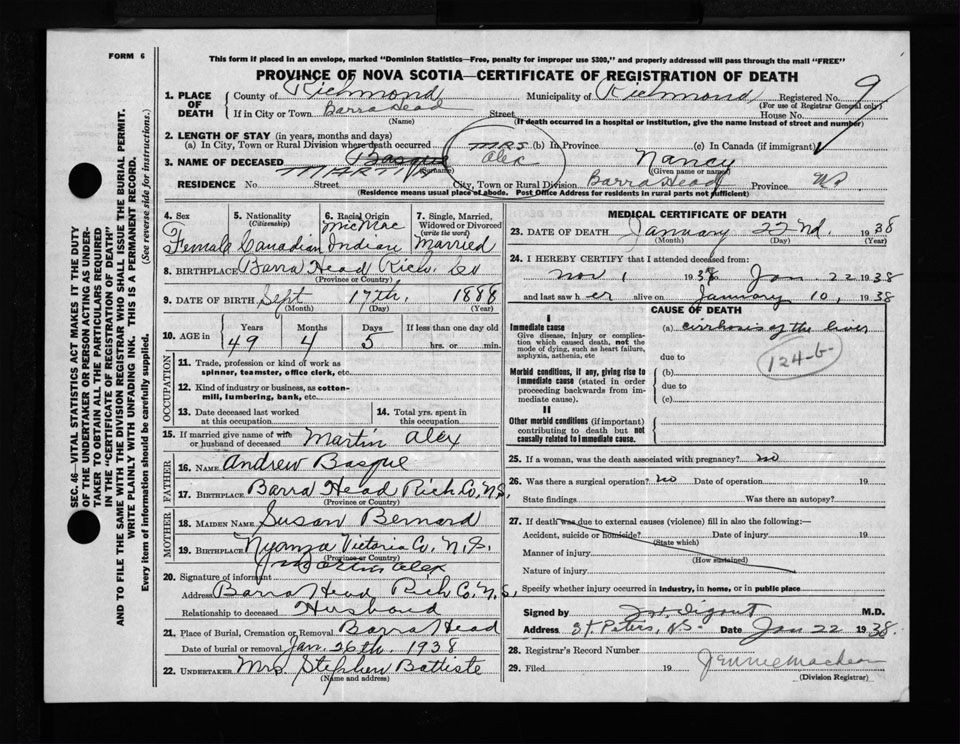 FORM 6
This form if placed in an envelope, marked "Dominion Statistics—Free, penalty for improper use $300," and properly addressed will pass through the mail "FREE"
PROVINCE OF NOVA SCOTIA—CERTIFICATE OF REGISTRATION OF DEATH
SEC. 46—VITAL STATISTICS ACT MAKES IT THE DUTY
OF THE UNDERTAKER OR PERSON ACTING AS UNDER-
TAKER TO OBTAIN ALL THE PARTICULARS REQUIRED
IN THE "CERTIFICATE OF REGISTRATION OF DEATH"
AND TO FILE THE SAME WITH THE DIVISION REGISTRAR WHO SHALL ISSUE THE BURIAL PERMIT.
WRITE PLAINLY WITH UNFADING INK. THIS IS A PERMANENT RECORD.
Every item of information should be carefully supplied. (See reverse side for instructions.)
1. PLACE OF DEATH County of Richmond Municipality of Richmond Registered No. 9
(For use of Registrar General only)
If in City or Town Barra Head Street House No.
(Name) (If death occurred in a hospital or institution, give the name instead of street and number)
2. LENGTH OF STAY (in years, months and days)
(a) In City, Town or Rural Division where death occurred (b) In Province (c) In Canada (if immigrant)
3. NAME OF DECEASED Basque MARTIN MRS Alex Nancy
(Surname) (Given name or names)
RESIDENCE No. Street City, Town or Rural Division Barra Head Province NS
(Residence means usual place of abode. Post Office Address for residents in rural parts not sufficient)
4. Sex 5. Nationality (Citizenship) 6. Racial Origin 7. Single, Married, Widowed or Divorced (write the word)
Female Canadian McMac Indian Married
8. BIRTHPLACE Barra Head Rich. Co
(Province or Country)
9. DATE OF BIRTH Sept 17th, 1888
(Month) (Day) (Year)
10. AGE IN Years Months Days If less than one day old
49 4 5 hrs. or min.
OCCUPATION
11. Trade, profession or kind of work as
spinner, teamster, office clerk, etc.
12. Kind of industry or business, as cotton-
mill, lumbering, bank, etc.
13. Date deceased last worked at this occupation 14. Total yrs. spent in this occupation
15. If married give name of wife or husband of deceased Martin Alex
FATHER
16. NAME Andrew Basque
17. BIRTHPLACE Barra Head Rich Co, N.S.
(Province or Country)
MOTHER
18. MAIDEN NAME Susan Bernard
19. BIRTHPLACE Nyanza Victoria Co. N.S.
(Province or Country)
20. Signature of informant Martin Alex
Address Barra Head Rich Co. N.S.
Relationship to deceased Husband
21. Place of Burial, Cremation or Removal Barra Head
Date of burial or removal Jan. 26th. 1938
22. UNDERTAKER Mrs. Stephen Battiste
(Name and address)
MEDICAL CERTIFICATE OF DEATH
23. DATE OF DEATH January 22nd. 1938
(Month) (Day) (Year)
24. I HEREBY CERTIFY that I attended deceased from:
Nov 1 193 to Jan 22 1938
and last saw her alive on January 10, 1938
CAUSE OF DEATH
I
Immediate cause
Give disease, injury or complication which caused death, not the mode of dying, such as heart failure, asphyxia, asthenia, etc
(a) cirrhosis of the liver
due to
124-b-
Morbid conditions, if any, giving rise to immediate cause (stated in order proceeding backwards from immediate cause).
(b)
due to
(c)
II
Other morbid conditions (if important) contributing to death but not causally related to immediate cause.
25. If a woman, was the death associated with pregnancy? no
26. Was there a surgical operation? no Date of operation 19
State findings Was there an autopsy?
27. If death was due to external causes (violence) fill in also the following:—
Accident, suicide or homicide? Date of injury 19
(State which)
Manner of injury
(How sustained)
Nature of injury
Specify whether injury occurred in industry, in home, or in public place
Signed by M.D.
Address St. Peters, N.S. Date Jan 22 1938.
28. Registrar's Record Number
29. Filed 19 Jennie
(Division Registrar)